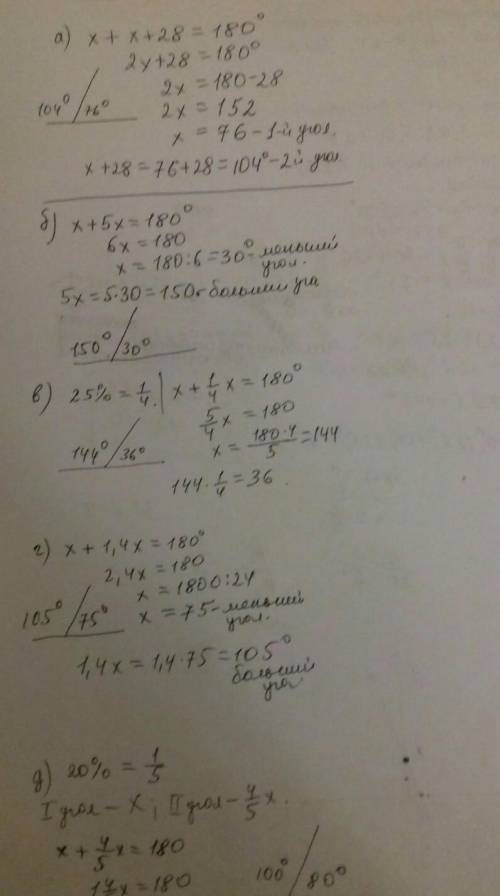 а) x + x + 28 = 180°
2x + 28 = 180°
2x = 180 - 28
104° / 76°
2x = 152
x = 76 - 1-й угол.
x + 28 = 76 + 28 = 104° - 2й угол
б) x + 5x = 180°
6x = 180
x = 180:6 = 30° - меньший угол.
5x = 5·30 = 150 - больший
150° / 30°
в) 25% = 1/4. | x + 1/4 x = 180°
5/4 x = 180
144° / 36°
x = 180·4/5 = 144
144 · 1/4 = 36.
г) x + 1,4x = 180°
2,4x = 180
x = 1800:24
105° / 75°
x = 75 - меньший
угол.
1,4x = 1,4·75 = 105°
больший
угол
д) 20% = 1/5
I угол - x; II угол - 4/5 x.
x + 4/5 x = 180
1 4/5 x = 180
100° / 80°